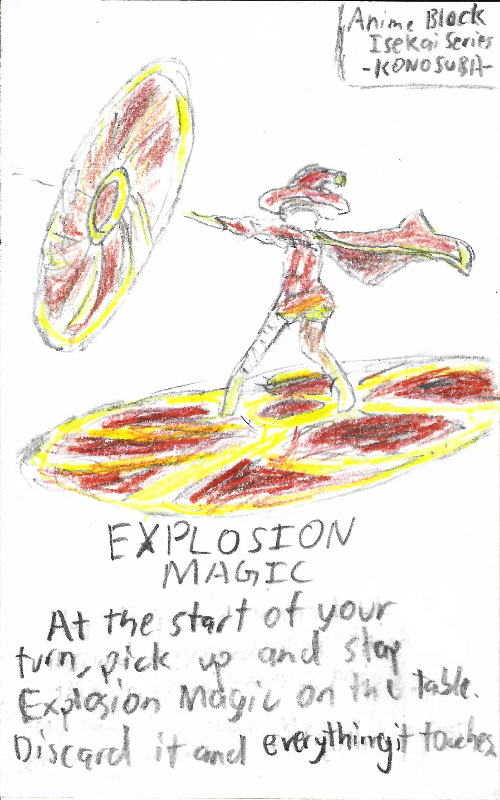 Anime Block
Isekai Series
-KONOSUBA-
EXPLOSION
MAGIC
At the start of your
turn, pick up and slap
Explosion Magic on the table.
Discard it and everything it touches.